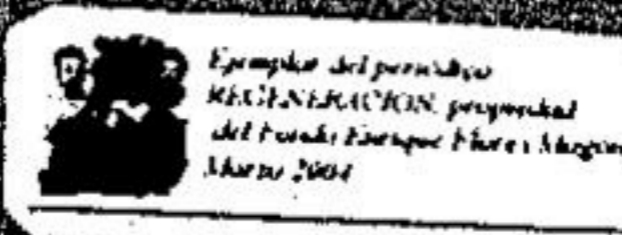 Ejemplar del periódico
REGENERACION, propiedad
del Fondo Enrique Flores Magón
Marzo 2004